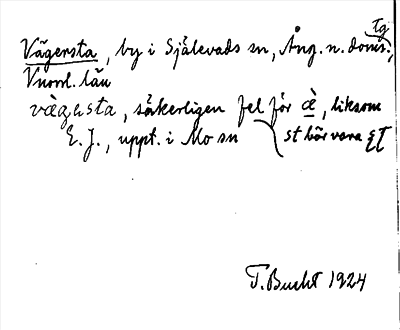 Vägersta, by i Själevads sn, Ång. n. doms.,
tg
Vnorrl. län
vägasta, säkerligen fel för ä̀, liksom
E. J., uppt. i Mo sn
st bör vara
T. Bucht 1924